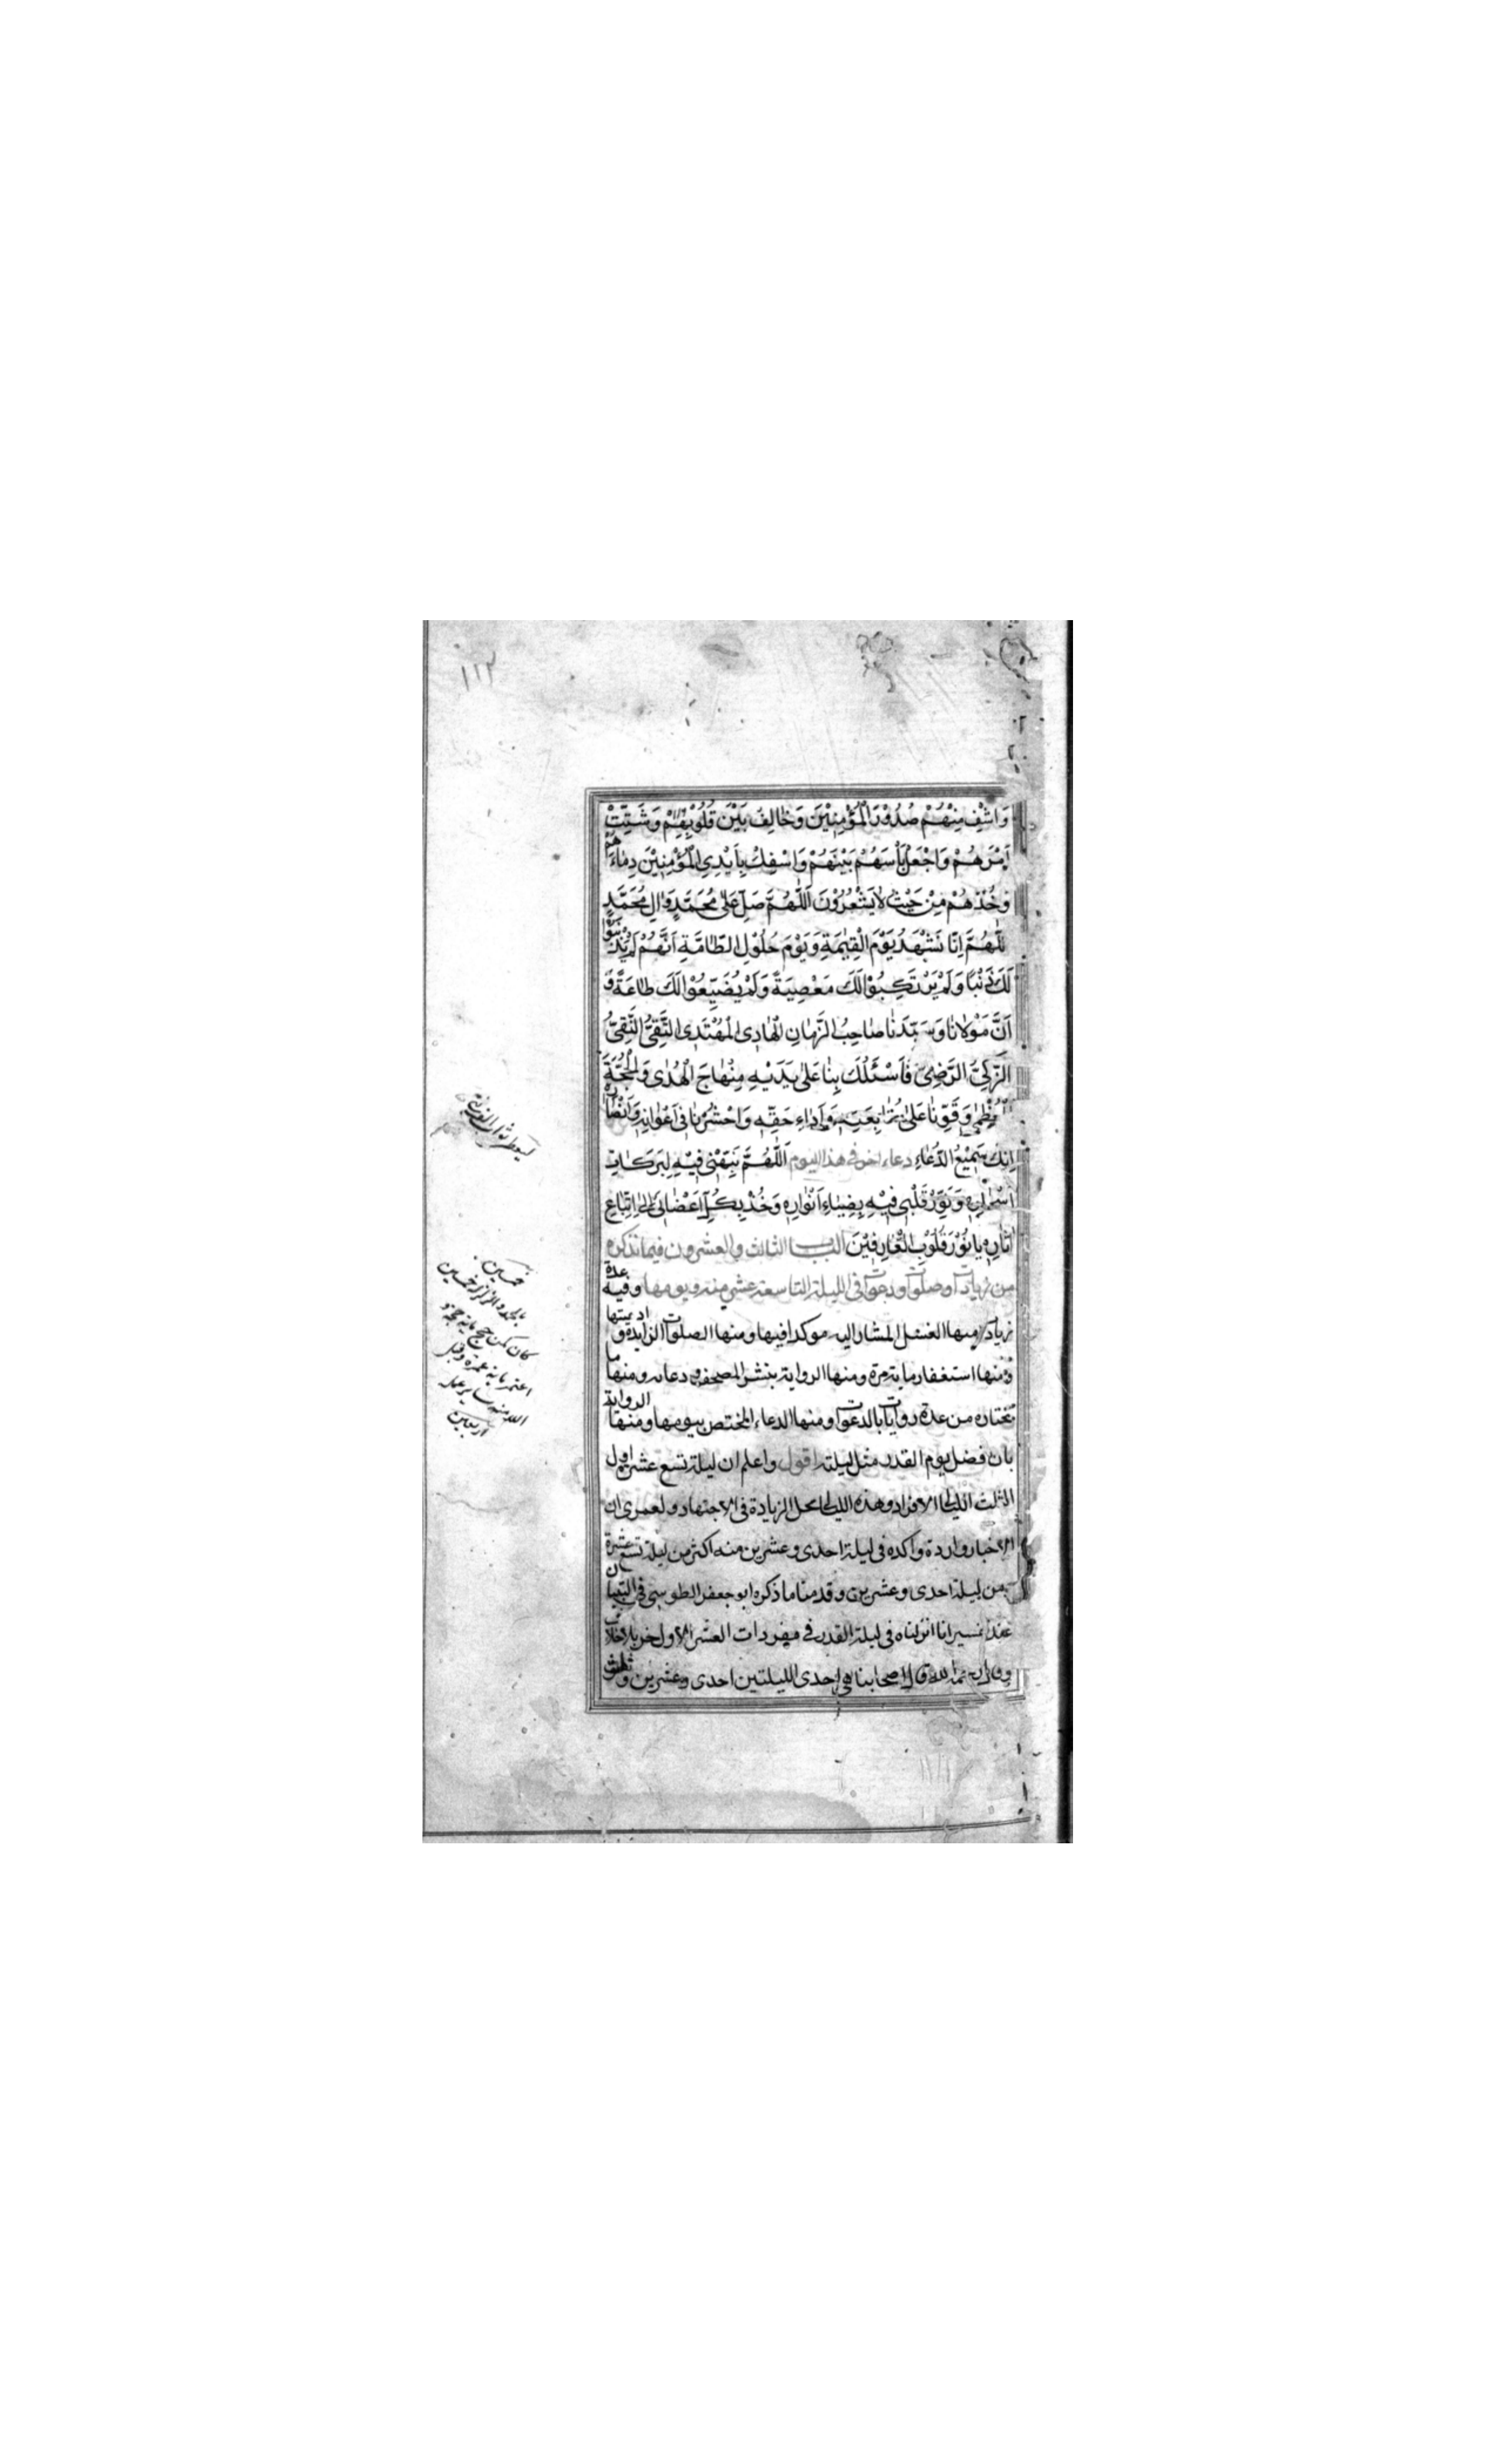 ١١٢
وَاشْفِ مِنْهُمْ صُدُوْرَ الْمُؤْمِنِيْنَ وَخَالِفْ بَيْنَ قُلُوْبِهِمْ وَشَتِّتْ
اَمْرَهُمْ وَاجْعَلْ بَأْسَهُمْ بَيْنَهُمْ وَاسْفِكْ بِاَيْدِى الْمُؤْمِنِيْنَ دِمَاءَهُمْ
وَخُذْهُمْ مِنْ حَيْثُ لَا يَشْعُرُوْنَ اَللّٰهُمَّ صَلِّ عَلٰى مُحَمَّدٍ وَاٰلِ مُحَمَّدٍ
اللّٰهُمَّ اِنَّا نَشْهَدُ يَوْمَ الْقِيٰمَةِ وَيَوْمَ حُلُوْلِ الطَّامَّةِ اَنَّهُمْ لَمْ يُذْنِبُوْا
لَكَ ذَنْبًا وَلَمْ يَرْتَكِبُوْا لَكَ مَعْصِيَةً وَلَمْ يُضَيِّعُوْا لَكَ طَاعَةً وَ
اَنَّ مَوْلَانَا وَسَيِّدَنَا صَاحِبُ الزَّمَانِ الْهَادِى الْمُهْتَدِى التَّقِىُّ النَّقِىُّ
الزَّكِىُّ الرَّضِىُّ فَاَسْئَلُكَ بِنَا عَلٰى يَدَيْهِ مِنْهَاجَ الْهُدٰى وَالْمَحَجَّةَ
الْعُظْمٰى وَقَوِّنَا عَلٰى مُتَابِعَتِهِ وَاَدَاءِ حَقِّهِ وَاحْشُرْنَا فِى اَعْوَانِهِ وَاَنْصَارِهِ
اِنَّكَ سَمِيْعُ الدُّعَاءِ دعاء اخر فى هذا اليوم اَللّٰهُمَّ نَبِّهْنِى فِيْهِ لِبَرَكَاتِ
اَسْحَارِهِ وَنَوِّرْ قَلْبِى فِيْهِ بِضِيَاءِ اَنْوَارِهِ وَخُذْ بِكُلِّ اَعْضَائِى اِلٰى اِتِّبَاعِ
اٰثَارِهِ يَا نُوْرَ قُلُوْبِ الْعَارِفِيْنَ الباب الثالث والعشرون فيما نذكره
من زيادات وصلوات ودعوات فى الليلة التاسعة عشر منه ويومها وفيه عدة
زيادات منها الغسل المشار اليه موكدا فيها ومنها الصلوات الزايدة وادعيتها
ومنها استغفار ماية مرة ومنها الرواية بنشر المصحف ودعائه ومنها ما
نختاره من عدة روايات بالدعوات ومنها الدعاء المختص بيومها ومنها الرواية
بان فضل يوم القدر مثل ليلته اقول واعلم ان ليلة تسع عشر اول
الثلث الليالى الافراد وهذه الليالى محل الزيادة فى الاجتهاد ولعمرى ان
الاخبار واردة واكده فى ليلة احدى وعشرين منه اكثر من ليلة تسع عشرة
من ليلة احدى وعشرين وقدمنا ما ذكره ابو جعفر الطوسى فى التبيان
عند تفسير انا انزلناه فى ليلة القدر فى مفردات العشر الاواخر بلا خلاف
وقال رحمه الله قال اصحابنا هى احدى الليلتين احدى وعشرين وثلث
كان كمن حج ماية حجة و
اعتمر ماية عمرة وقبل
الله منه ساير عمل
اربعين